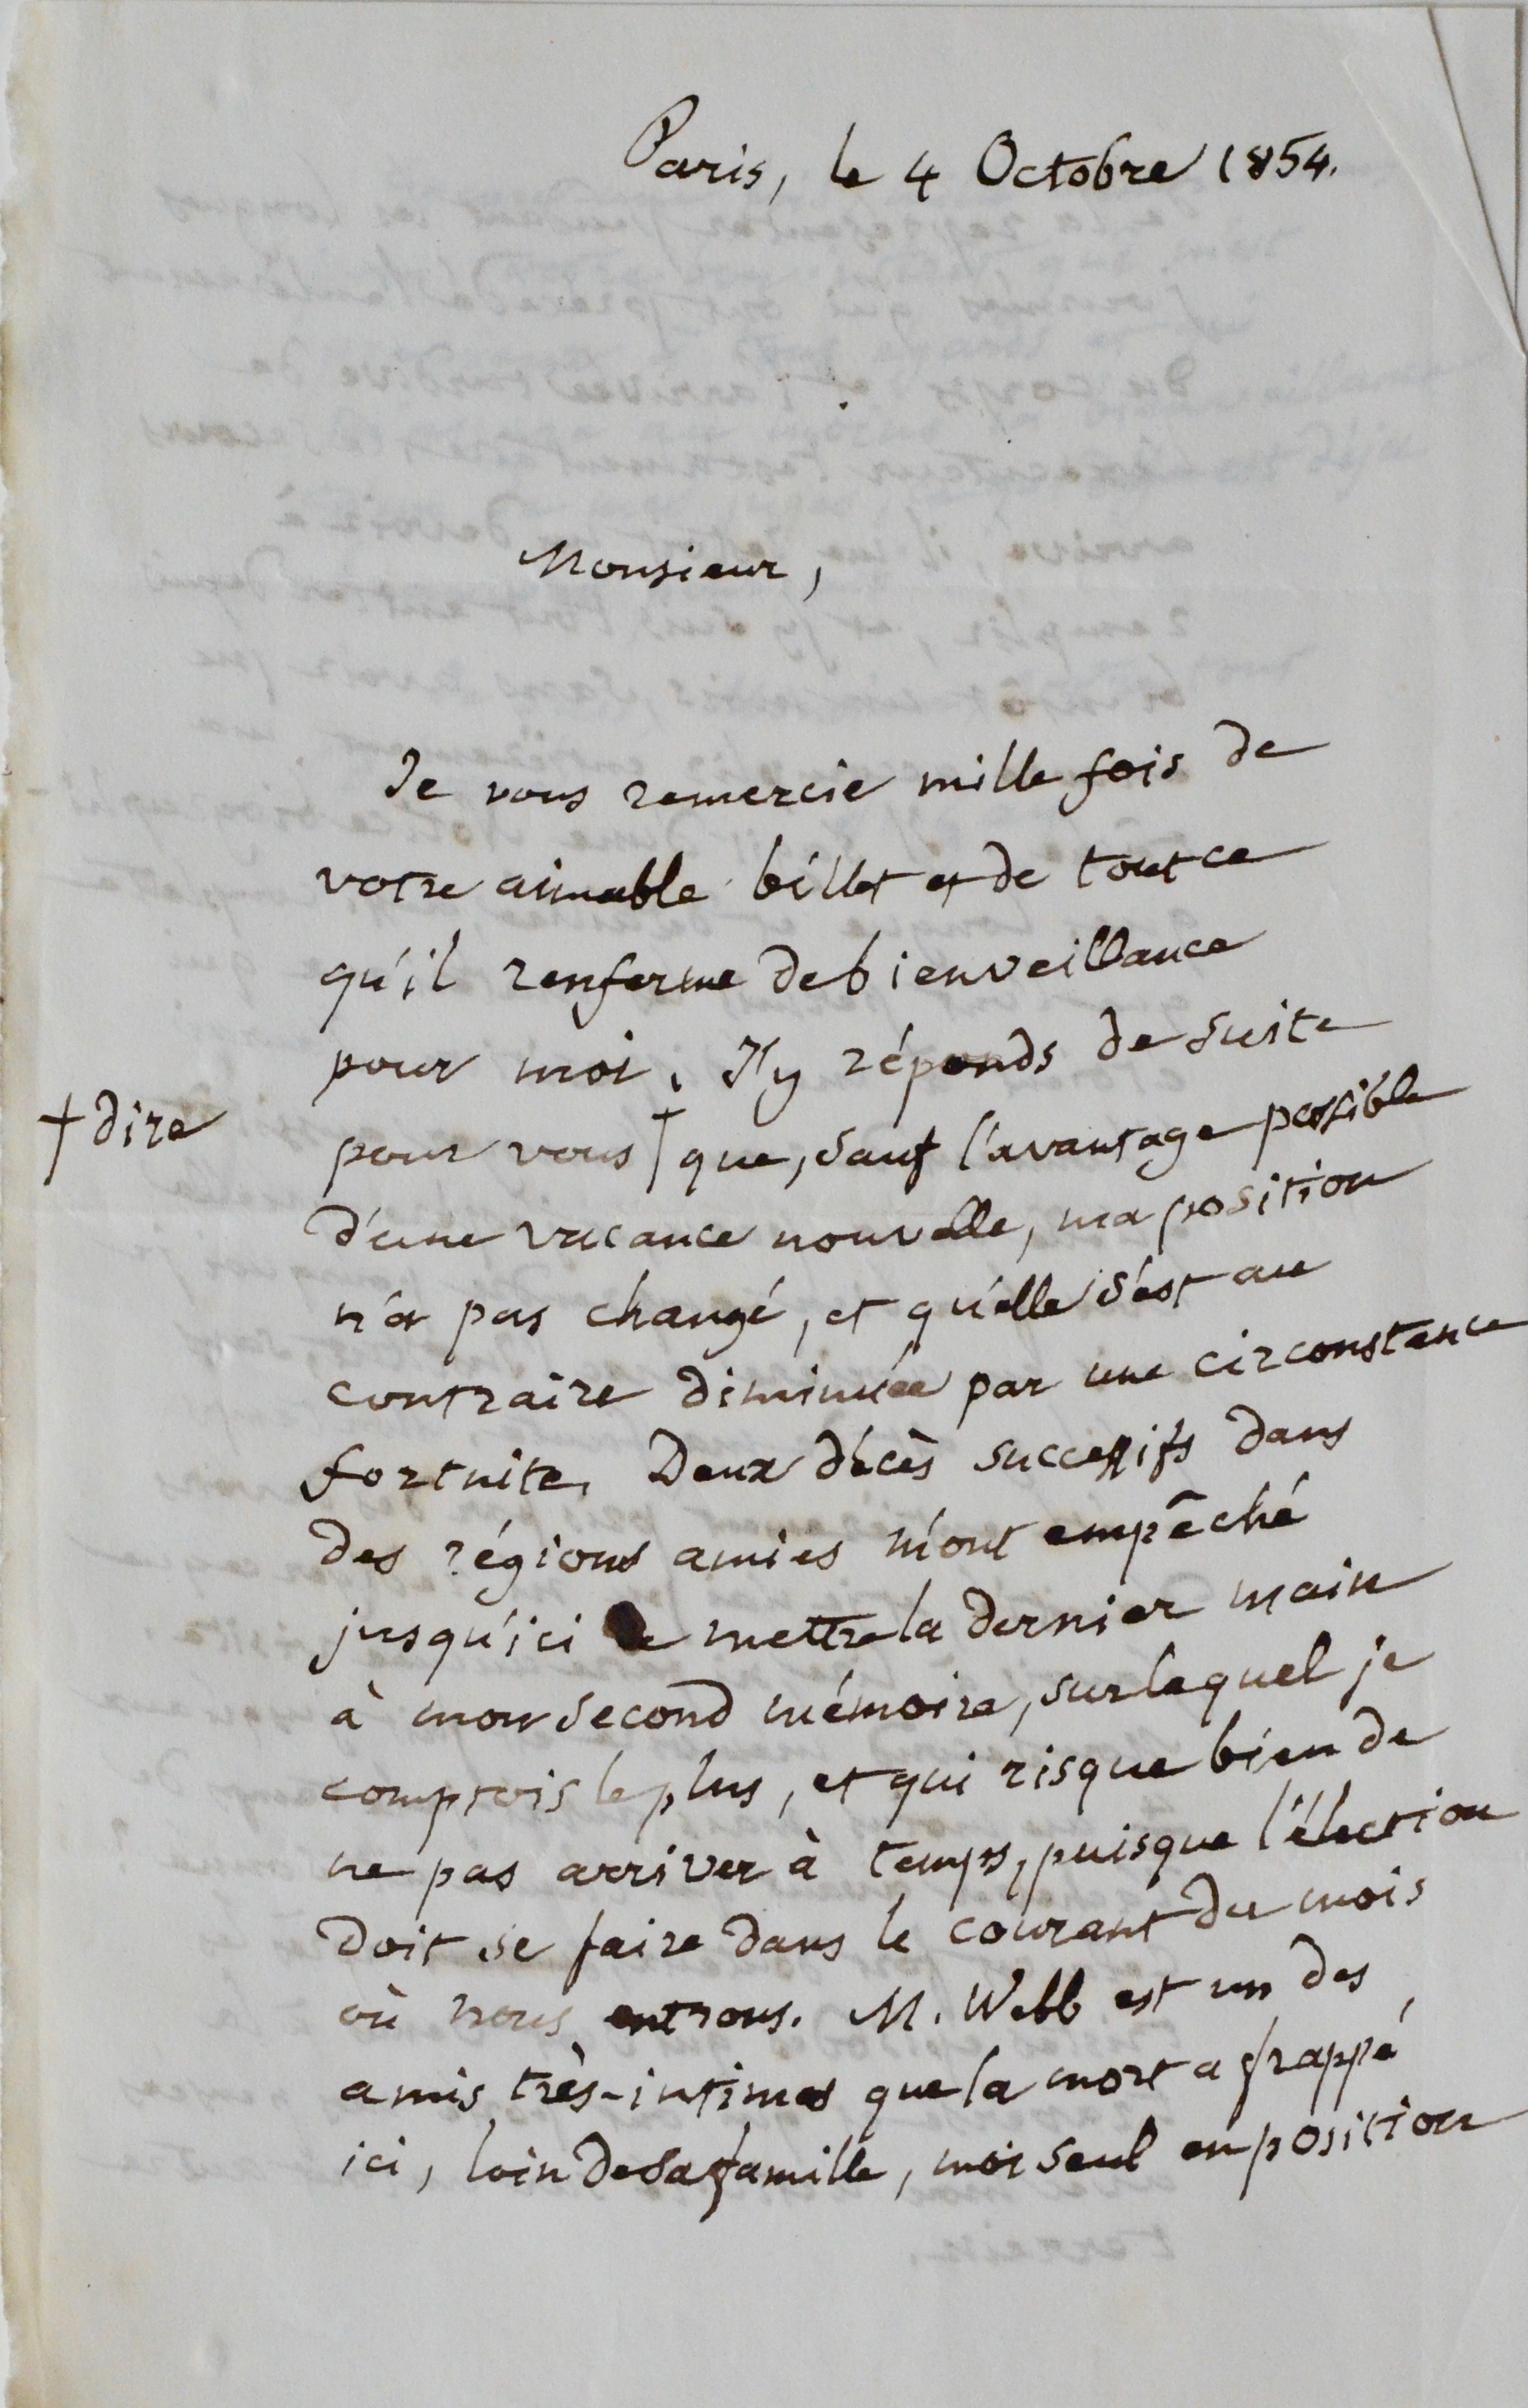 Paris, le 4 Octobre 1854.
Monsieur,
Je vous remercie mille fois de
votre aimable billet et de tout ce
qu'il renferme de bienveillance
pour moi. J'y réponds de suite
† dire
pour vous † que, sauf l'avantage possible
d'une vacance nouvelle, ma position
n'a pas changé, et qu'elle s'est au
contraire diminuée par une circonstance
fortuite. Deux décès successifs dans
des régions amies m'ont empêché
jusqu'ici de mettre la dernier main
à mon second mémoire, sur lequel je
comptois le plus, et qui risque bien de
ne pas arriver à temps, puisque l'élection
doit se faire dans le courant du mois
où nous entrons. M. Webb est un des
amis très-intimes que la mort a frappé
ici, loin de sa famille, moi seul en position